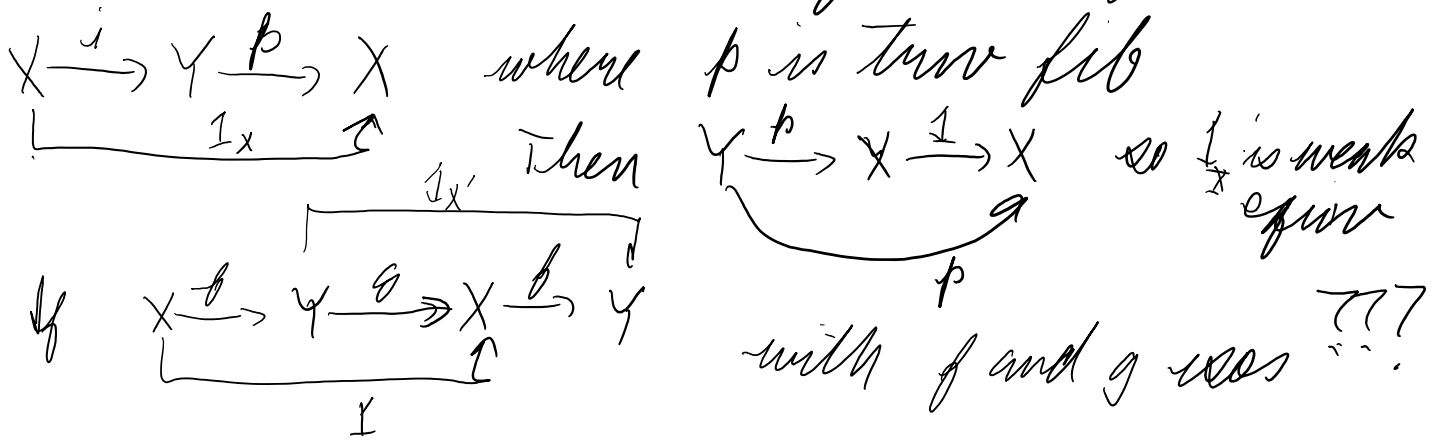 X →i Y →p X where p is triv fib
1_X Then Y →p X →1 X so 1_X is weak
1_X' p equiv
If X →f Y →g X →f Y with f and g isos ???
1